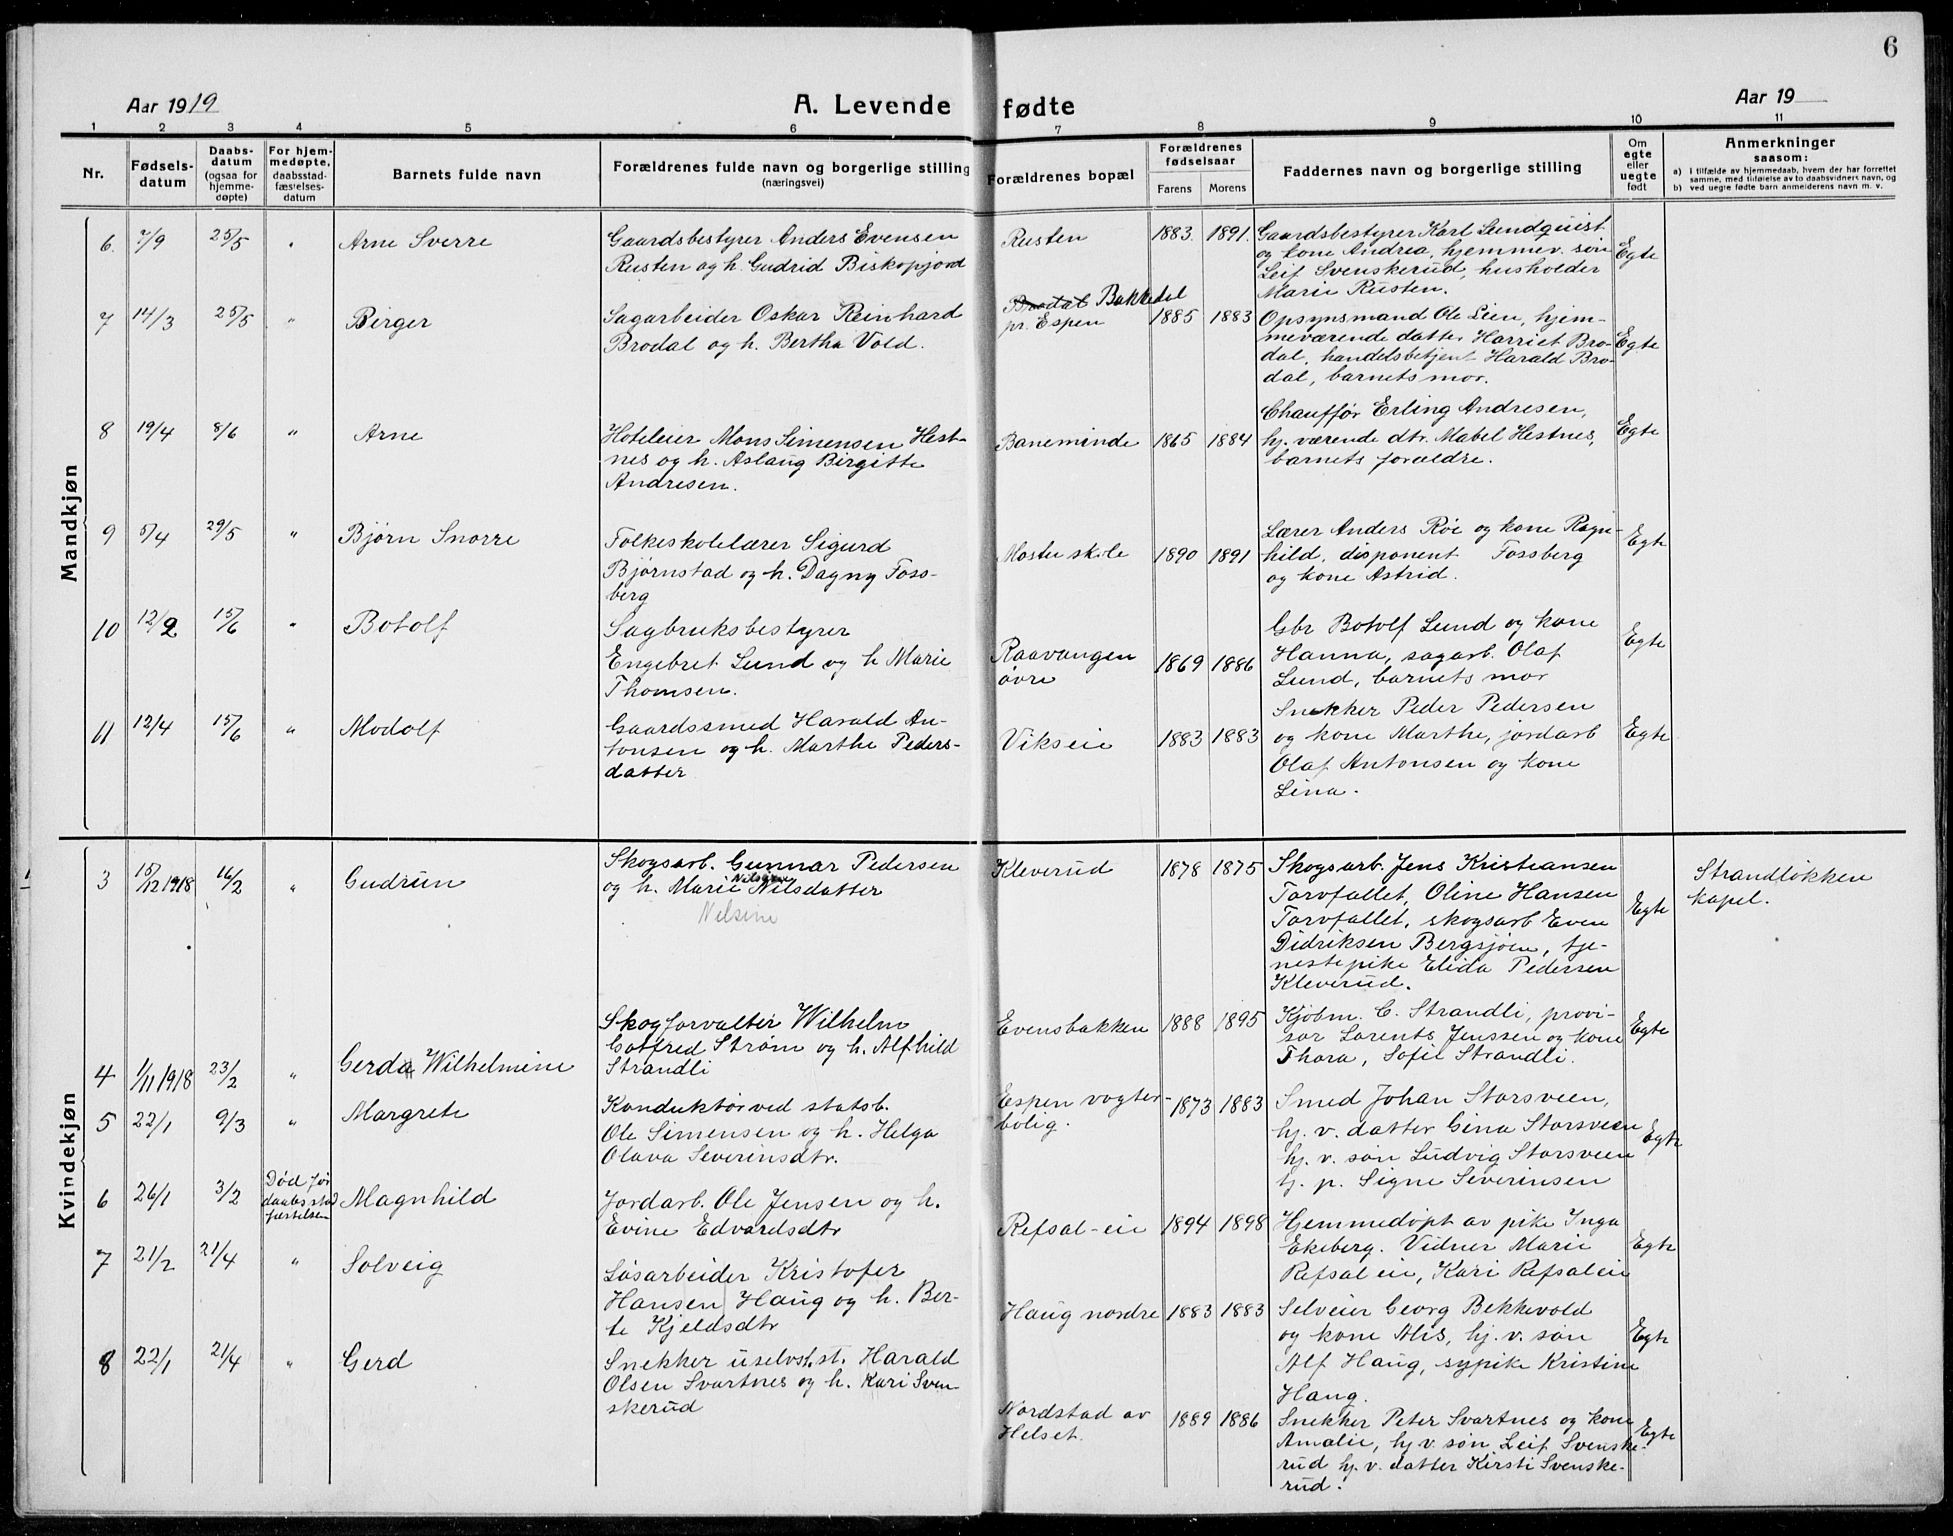 6
Aar 1919
A. Levende fødte
Aar 19
1 2 3 4 5 6 7 8 9 10 11
Nr.
Fødsels-
datum
Daabs-
datum
(ogsaa for
hjemme-
døpte)
For hjem-
medøpte,
daabsstad-
fæstelses-
datum
Barnets fulde navn
Forældrenes fulde navn og borgerlige stilling
(næringsvei)
Forældrenes bopæl
Forældrenes
fødselsaar
Farens Morens
Faddernes navn og borgerlige stilling
Om
egte
eller
uegte
født
Anmerkninger
saasom:
a) i tilfælde av hjemmedaab, hvem der har forrettet
samme, med tilføielse av to daabsvidners navn, og
b) ved uegte fødte barn anmelderens navn m. v.
Mandkjøn
6. 7/9 25/5 " Arne Sverre
Gaardsbestyrer Anders Evensen
Rusten og h. Gudrid Biskopjord
Rusten
1883. 1891.
Gaardsbestyrer Karl Lundquist
og kone Andrea, hjemmev. søn
Leif Svenskerud, husholder
Marie Rusten.
Egte
7 14/3 25/5 " Birger
Sagarbeider Oskar Reinhard
Brodal og h. Bertha Vold.
Brodal Bakkedal
pr. Espen
1885 1883
Opsynsmand Ole Lien, hjem-
meværende datter Harriet Bro-
dal, handelsbetjent Harald Bro-
dal, barnets mor.
Egte
8 19/4 8/6 " Arne
Hoteleier Mons Simensen Hest-
nes og h. Aslaug Birgitte
Andresen.
Baneminde
1865 1884
Chauffør Erling Andresen,
hj. værende dtr. Mabel Hestnes,
barnets forældre.
Egte
9 5/4 29/5 " Bjørn Snorre
Folkeskolelærer Sigurd
Bjørnstad og h. Dagny Foss-
berg
Moster skole
1890 1891
Lærer Anders Røe og kone Ragn-
hild, disponent Fossberg
og kone Astrid.
Egte
10 12/2 15/6 " Botolf
Sagbruksbestyrer
Engebret Lund og h Marie
Thomsen.
Raavangen
øvre
1869 1886
Gbr Botolf Lund og kone
Hanna, sagarb. Olaf
Lund, barnets mor
Egte
11 12/4 15/6 " Modolf
Gaardssmed Harald An-
tonsen og h. Marthe Peders-
datter
Vikseie
1883 1883
Snekker Peder Pedersen
og kone Marthe, jordarb
Olaf Antonsen og kone
Lina.
Egte
Kvindekjøn
3 15/12 1918 16/2 " Gudrun
Skogsarb. Gunnar Pedersen
og h. Marie Nilsine Nilsdatter
Nilsine
Kleverud
1878 1875
Skogsarb. Jens Kristiansen
Torvfallet, Oline Hansen
Torvfallet, skogsarb Even
Didriksen Bergsjøen, tje-
nestepike Elida Pedersen
Kleverud.
Egte
Strandløkken
kapel.
4 1/11 1918 23/2 " Gerda Wilhelmine
Skogforvalter Wilhelm
Gotfred Strøm og h. Alfhild
Strandli
Evensbakken
1888 1895
Kjøbm. C. Strandli, provi-
sor Lorents Jenssen og kone
Thora, Sofie Strandli.
Egte
5 22/1 9/3 " Margrete
Konduktør ved statsb.
Ole Simensen og h. Helga
Olava Severinsdtr.
Espen vogter-
bolig.
1873 1883
Smed Johan Storsveen,
hj. v. datter Gina Storsveen
hj. v. søn Ludvig Storsveen
tj. p. Signe Severinsen
Egte
6 26/1 3/2
Død før
daabsstad
fæstelsen
Magnhild
Jordarb. Ole Jensen og h.
Evine Edvardsdtr
Refsal-eie
1894 1898
Hjemmedøpt av pike Inga
Ekeberg. Vidner Marie
Refsaleie, Kari Refsaleie
Egte
7 21/2 21/4 " Solveig
Løsarbeider Kristofer
Hansen Haug og h. Ber-
te Kjeldsdtr
Haug nordre
1883 1883
Selveier Georg Bekkevold
og kone Alis, hj. v. søn
Alf Haug, sypike Kristine
Haug.
Egte
8 22/1 21/4 " Gerd
Snekker uselvst. st. Harald
Olsen Svartnes og h. Kari Sven-
skerud
Nordstad av
Helset.
1889 1886
Snekker Peter Svartnes og kone
Amalie, hj v. søn Leif Svenske-
rud hj. v. datter Kirsti Svenske-
rud.
Egte